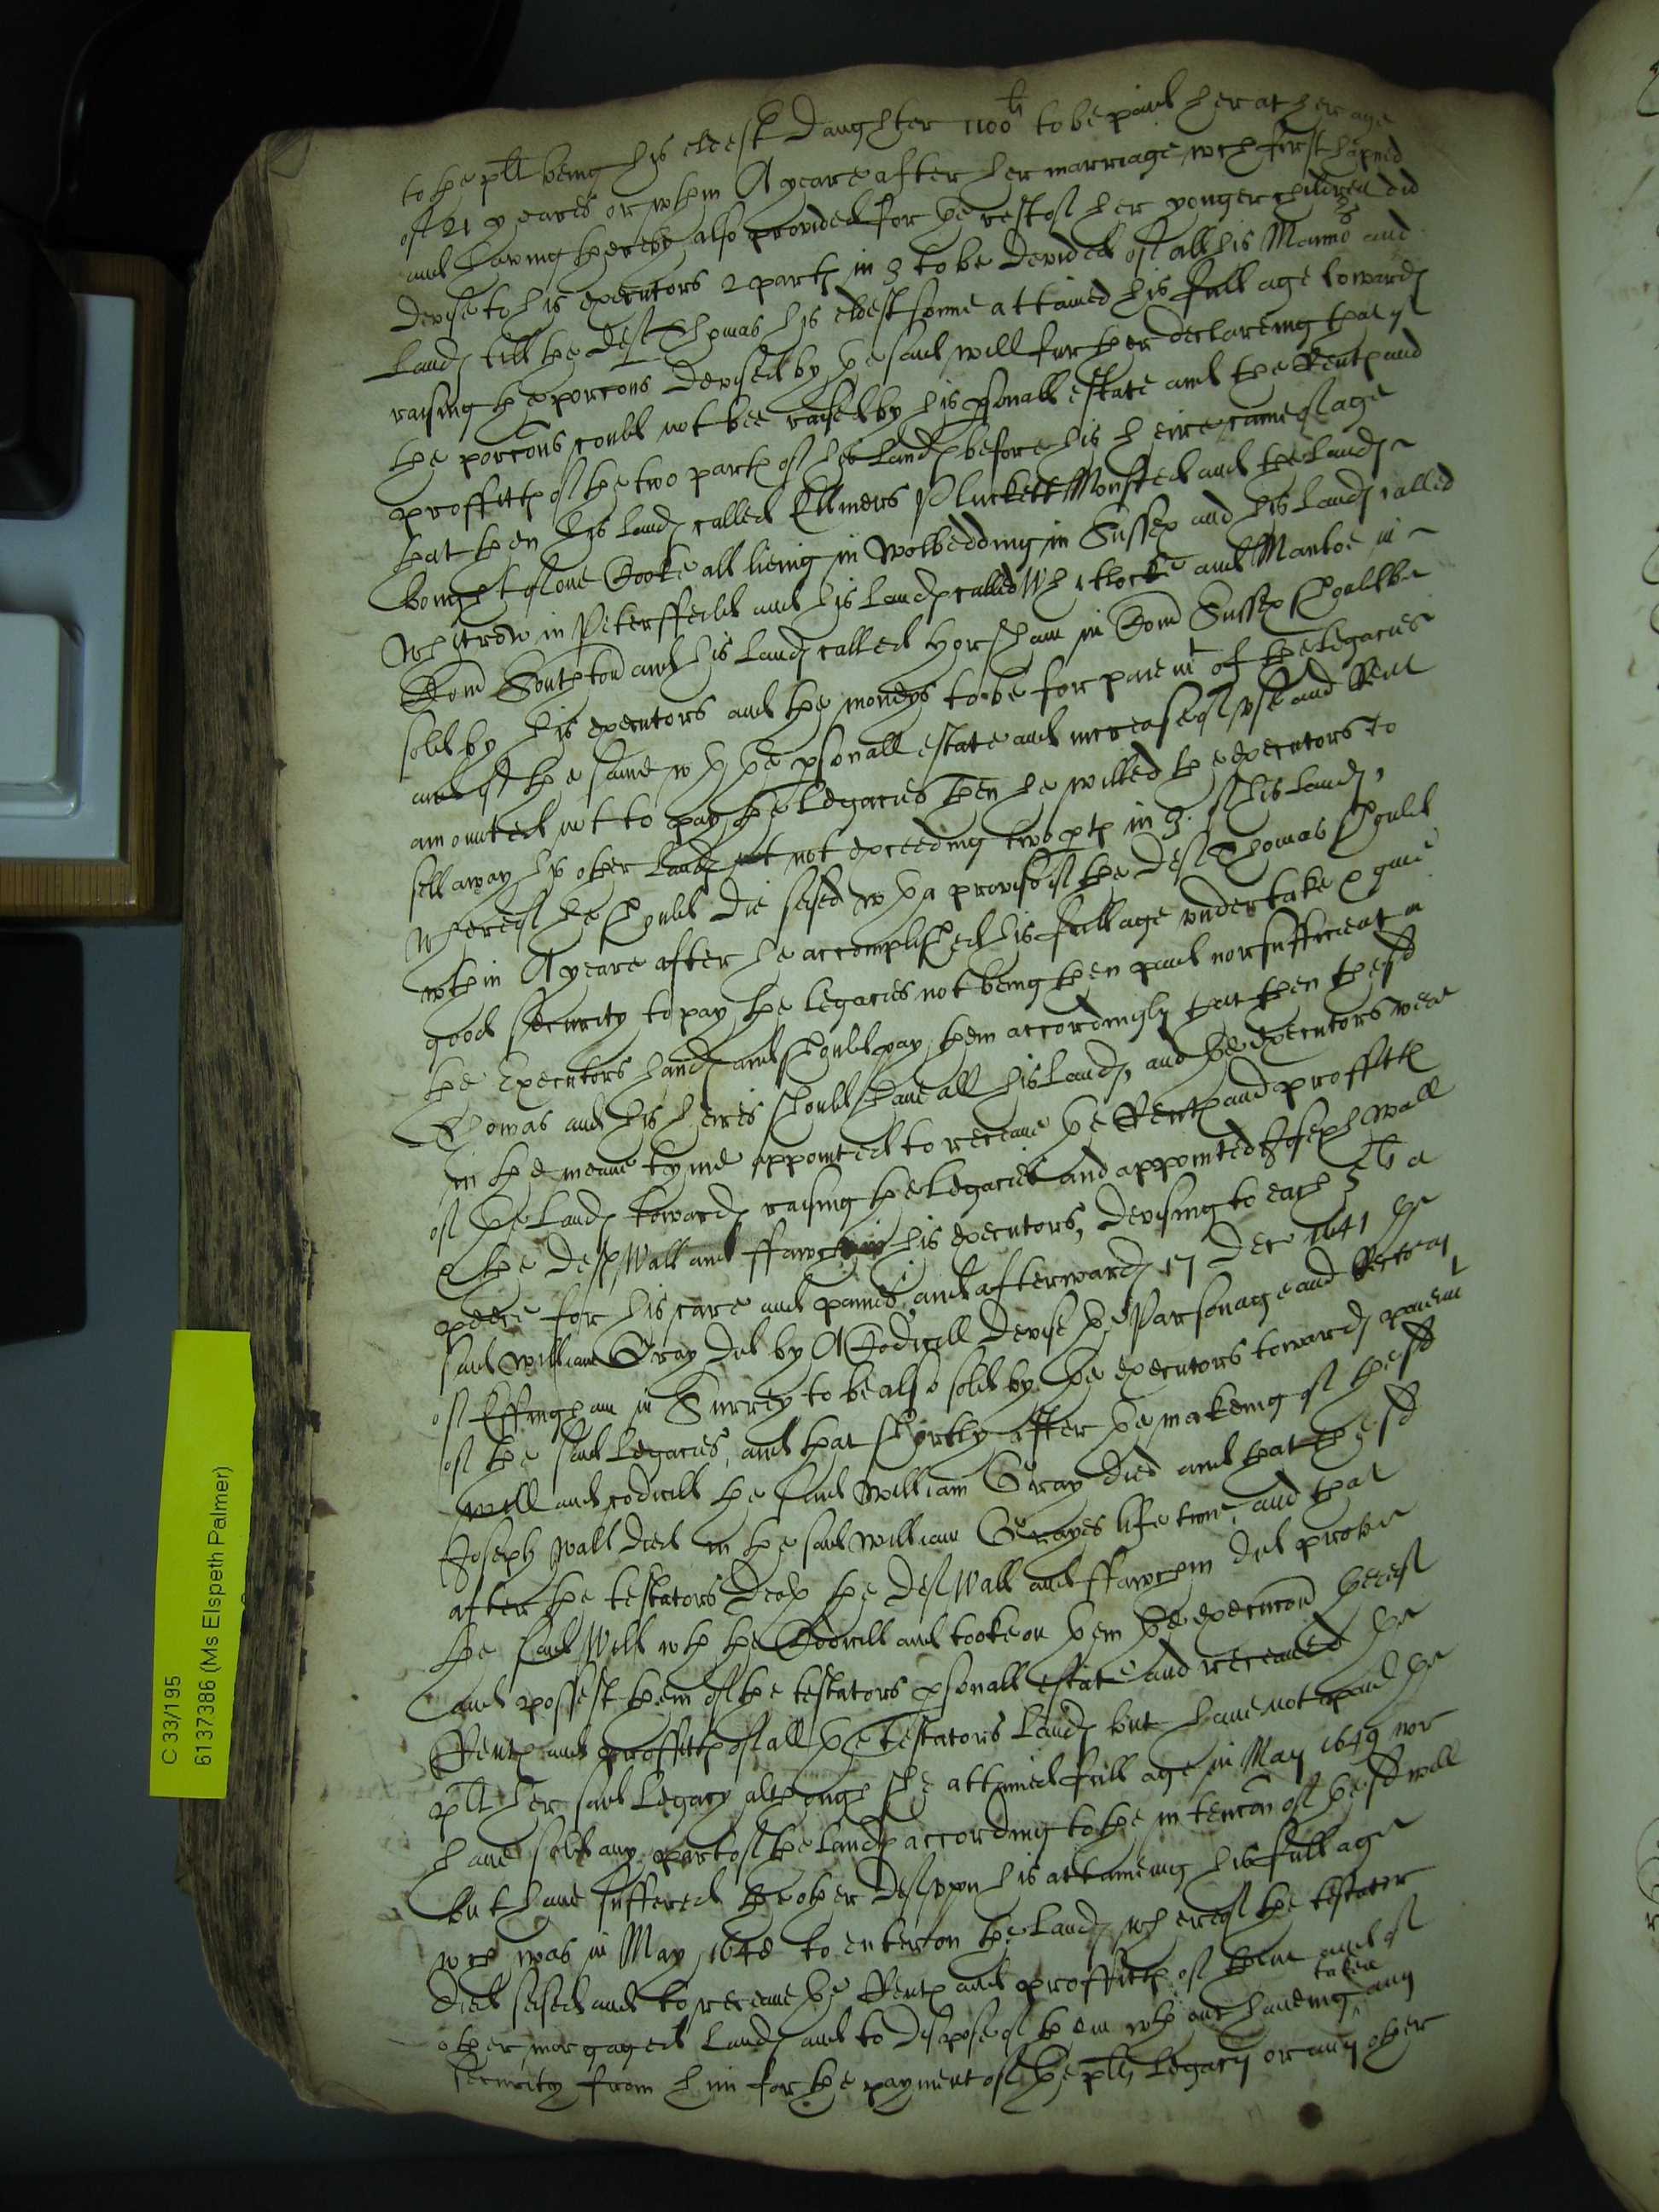 to the plt being his eldest daughter 1100li to be paid her at her age
of 21 yeares or wthin A yeare after her marriage wch first hapned
and having thereby also provided for the rest of her yonger children did
devise to his executors 2 parts in 3 to be devided of all his Mannors and
lands till the deft Thomas his eldest sonne attained his full age towards
raising the porcons devised by the said will further declareing that if
the porcons could not bee raised by his psonall estate and the Rents and
proffitts of the two parts of his lands before his heire came of age
that then his lands called Ellmers Pluckett Monsted and the lands
bought of one Cooke all lieing in Wolbedding in Sussex and his lands called
Whitrow in Petersfeild and his lands called Whitlocke and Manboe in
Com Southton and his lands called Horsham in Com Sussex should be
sold by his executors and the moneys to be for paiemt of the legacies
and if the same wth the psonall estate and increase of use and Rent
amounted not to pay the legacies then he willed the executors to
sell away his other lands not exceeding two pts in 3 of his lands,
whereof he should die seised wth a proviso if the deft Thomas should
wthin A yeare after he accomplished his full age undertake & give
good security to pay the legacies not being then paid nor sufficient in
the Executors hands and should pay them accordingly that then the sd
Thomas and his heires should have all his lands, and the executors were
in the meane tyme appointed to receive the Rents and proffitts
of the lands towards raising the legacies and appointed Joseph Wall
& the defts Wall and ffawchin his executors, devising to each 5li a
peece for his care and paines, and afterwards 17 Dec 1641 the
said William Gray did by A Codicill devise the Parsonage and Rectory
of Effingham in Surrey to be also sold by the executors towards paiemt
of the said legacies, and that shortly after the makeing of the sd
will and codicill the said William Gray died and that the sd
Joseph Wall died in the said William Grayes life time, and that
after the testators death the defts Wall and ffawchin did prove
the said Will wth the Codicill and tooke on them the execucon thereof
and possest them of the testators psonall estate and received the
Rents and proffitts of all the testators lands but have not paid the
plt her said legacy although she attained full age in May 1649 nor
have sold any part of the lands according to the intencon of the sd will
but have suffered the other deft upon his attaineing his full age
wch was in May 1648 to enter on the lands whereof the testator
died seised and to receive the Rents and proffitts of them and of
other morgaged lands and to dispose of them wthout haveing taken any
security from him for the payment of the plts legacy or any other
C 33/195
6137386 (Ms Elspeth Palmer)